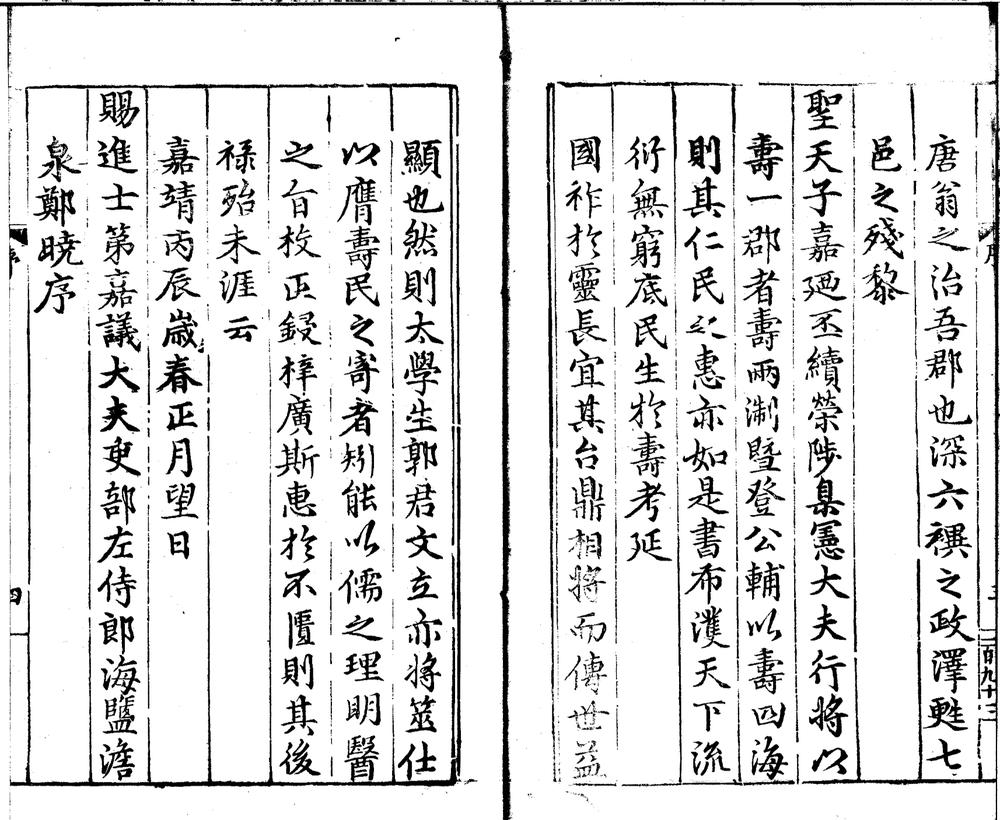 唐翁之治吾郡也深六禩之政澤甦七
邑之殘黎
聖天子嘉廼丕績榮陟臬憲大夫行將以
壽一郡者壽兩淛暨登公輔以壽四海
則其仁民之惠亦如是書布濩天下流
衍無窮底民生於壽考延
國祚於靈長宜其台鼎相將而傳世益
顯也然則太學生郭君文立亦將筮仕
以膺壽民之寄者矧能以儒之理明醫
之旨校正鋟梓廣斯惠於不匱則其後
祿殆未涯云
嘉靖丙辰歲春正月望日
賜進士第嘉議大夫吏部左侍郎海鹽澹
泉鄭曉序
序
四
二百九十三